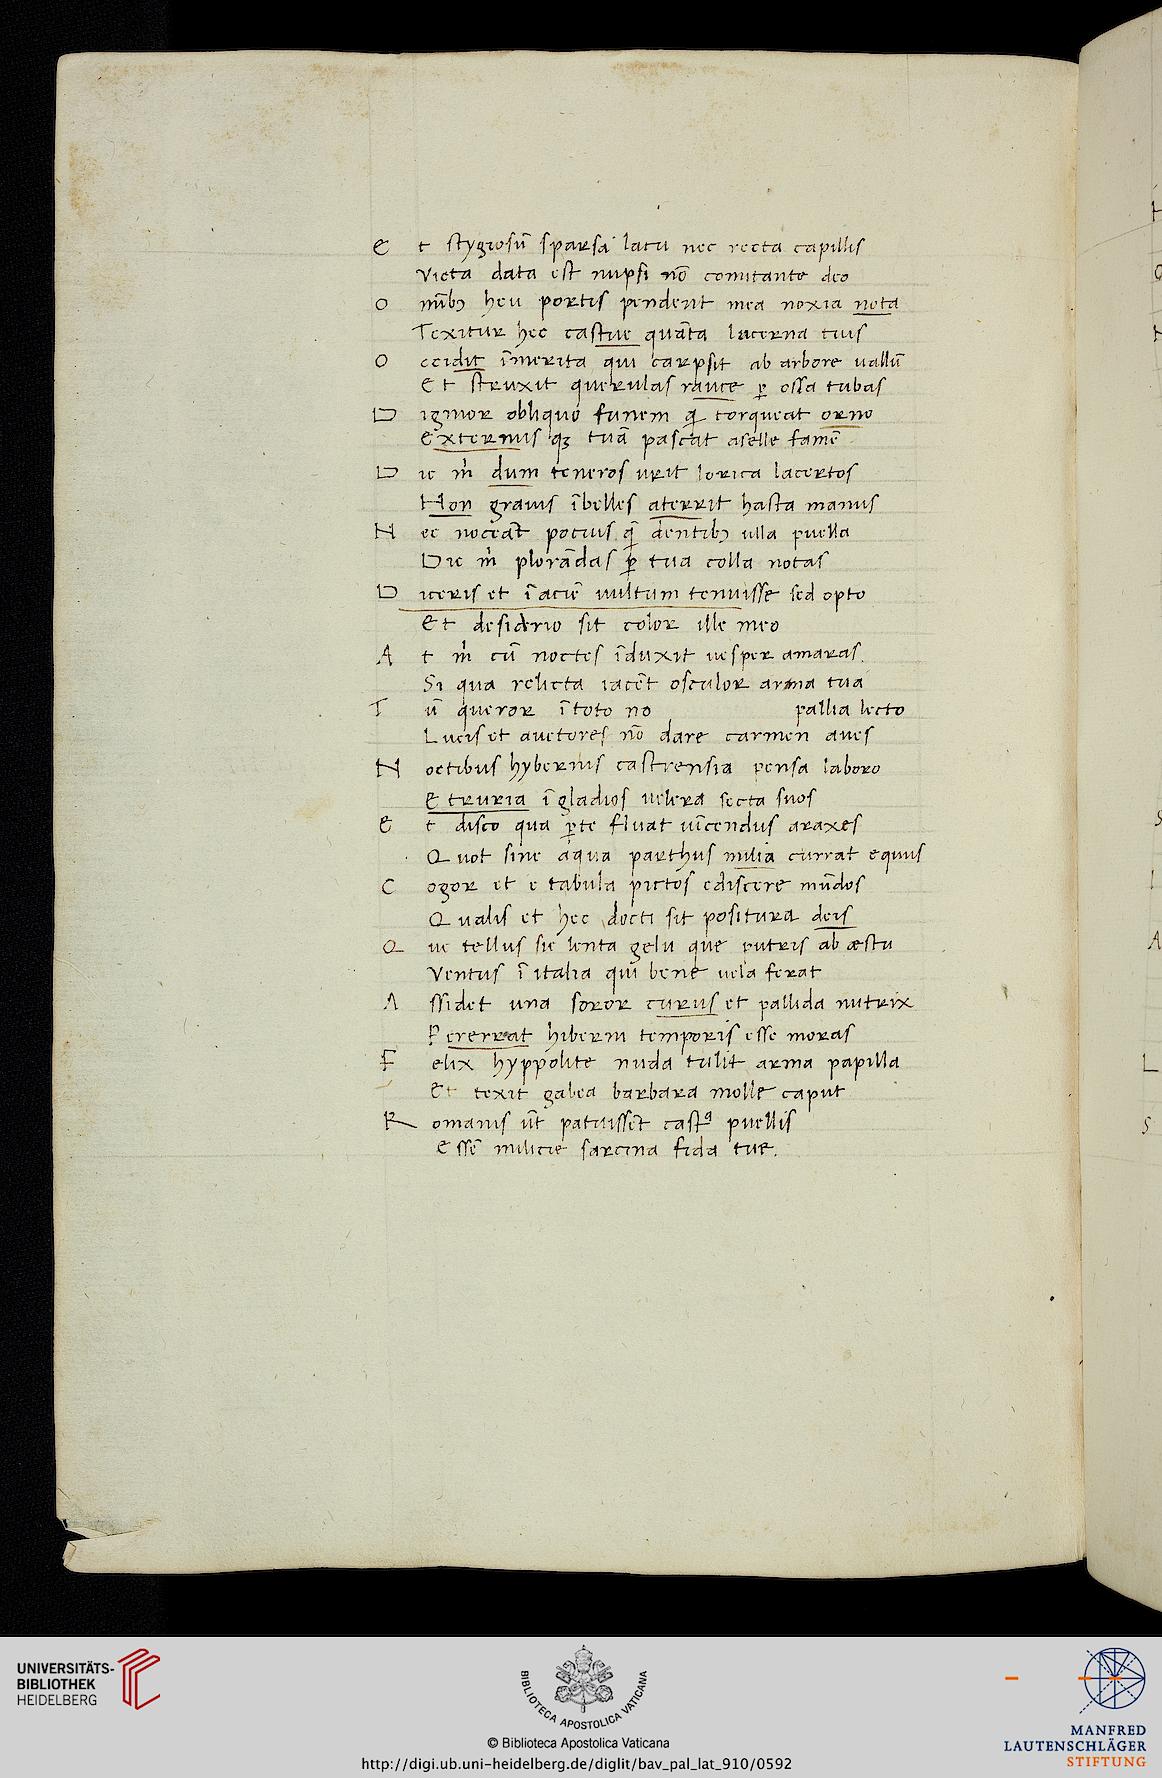 E t stygiosū sparsa lacu nec recta capillis
Victa data est nupsi nō comitante deo
O mībꝫ heu portis pendent mea noxia nota
Texitur hec castue quāta lucerna tuis
O ccidit īmerita qui carpsit ab arbore uallū
Et struxit querulas rauce ꝑ ossa tubas
D ignior obliquo funem q̄ torqueat orno
Externis qꝫ tuā pascat aselle famē
D ic m̄ dum teneros urit lorica lacertos
Non grauis ībelles aterrit hasta manus
H ec noceāt pocius q̄ dentibꝫ ulla puella
Dic m̄ plorādas ꝑ tua colla notas
D iceris et ī aciē uultum tenuisse sed opto
Et desiderio sit color ille meo
A t m̄ cū noctes īduxit uesper amaras.
Si qua relicta iacēt osculor arma tua
T ū queror ī toto no pallia lecto
Lucis et auctores nō dare carmen aues
N octibus hybernis castrensia pensa laboro
Etruria ī gladios uelera secta suos
E t disco qua ꝑte fluat uīcendus araxes
Quot sine aqua parthus milia currat equus
C ogor et e tabula pictos ediscere mūdos
Qualis et hec docti sit positura deis
Q ue tellus sic lenta gelu que putris ab æstu
Ventus ī italia qui bene uela ferat
A ssidet una soror curus et pallida nutrix
Pererrat hiberni temporis esse moras
F elix hyppolite nuda tulit arma papilla
Et texit galea barbara molle caput
R omanis ūt patuissēt castᵃ puellis
Essē milicie sarcina fida tue.
UNIVERSITÄTS-
BIBLIOTHEK
HEIDELBERG
BIBLIOTECA APOSTOLICA VATICANA
© Biblioteca Apostolica Vaticana
http://digi.ub.uni-heidelberg.de/diglit/bav_pal_lat_910/0592
MANFRED
LAUTENSCHLÄGER
STIFTUNG